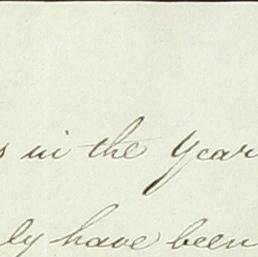 s in the Year
ly have been